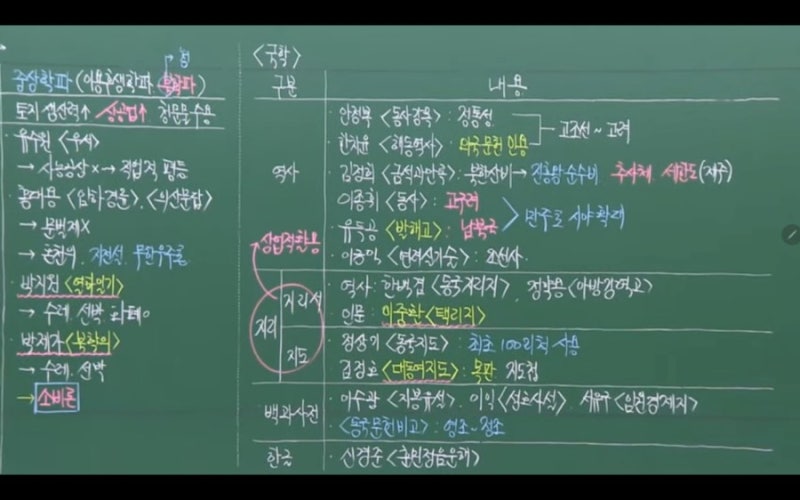 → 청
중상학파 (이용후생학파, 북학파)
토지 생산력↑ 상공업↑ 청문물 수용
· 유수원 <우서>
→ 사농공상 × → 직업적 평등
· 홍대용 <임하경륜>, <의산문답>
→ 문벌제X
→ 혼천의, 지전설, 무한우주론
· 박지원 <열하일기>
→ 수레, 선박, 화폐
· 박제가 <북학의>
→ 수레, 선박
→ 소비론
<국학>
구분
내용
역사
· 안정복 <동사강목> : 정통성
· 한치윤 <해동역사> : 외국 문헌 인용
고조선 ~ 고려
· 김정희 <금석과안록> : 북한산비 → 진흥왕 순수비 추사체 세한도 (제주)
· 이종휘 <동사> : 고구려
· 유득공 <발해고> : 남북국
만주로 시야 확대
· 이긍익 <연려실기술> : 조선사
상업적 활용
지리
지리서
· 역사 : 한백겸 <동국지리지>, 정약용 <아방강역고>
· 인문 : 이중환 <택리지>
지도
· 정상기 <동국지도> : 최초 100리척 사용
· 김정호 <대동여지도> : 목판 지도첩
백과사전
· 이수광 <지봉유설>, 이익 <성호사설>, 서유구 <임원경제지>
· <동국문헌비고> : 영조~정조
한글
· 신경준 <훈민정음운해>